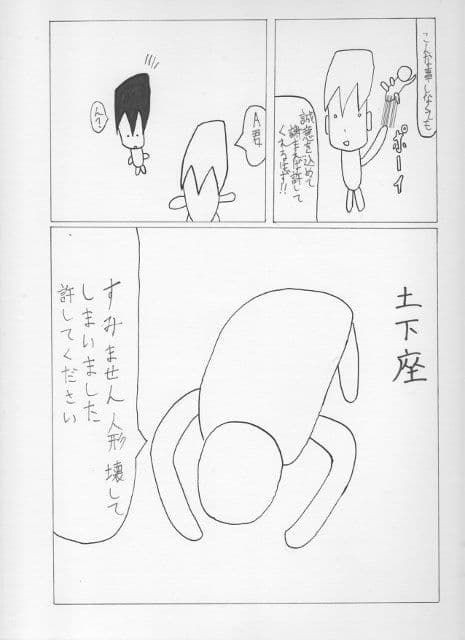 こんな事しなくても
ポーイ
誠意を込めて
謝まれば許して
くれるはず!!
A君
ん?
土下座
すみません人形壊して
しまいました
許してください